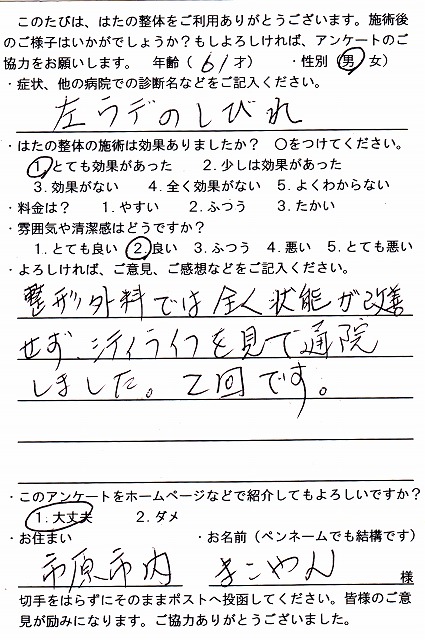 このたびは、はたの整体をご利用ありがとうございます。施術後
のご様子はいかがでしょうか？もしよろしければ、アンケートのご
協力をお願いします。　年齢（ 61 才）　・性別（男　女）
・症状、他の病院での診断名などをご記入ください。
左ウデのしびれ
・はたの整体の施術は効果ありましたか？　〇をつけてください。
1.とても効果があった　2.少しは効果があった
3.効果がない　4.全く効果がない　5.よくわからない
・料金は？　1.やすい　2.ふつう　3.たかい
・雰囲気や清潔感はどうですか？
1.とても良い　2.良い　3.ふつう　4.悪い　5.とても悪い
・よろしければ、ご意見、ご感想などをご記入ください。
整形外料では全く状能が改善
せず、シティライフを見て通院
しました。2回です。
・このアンケートをホームページなどで紹介してもよろしいですか？
1.大丈夫　2.ダメ
・お住まい　・お名前（ペンネームでも結構です）
市原市内　まこやん　様
切手をはらずにそのままポストへ投函してください。皆様のご意
見が励みになります。ご協力ありがとうございました。